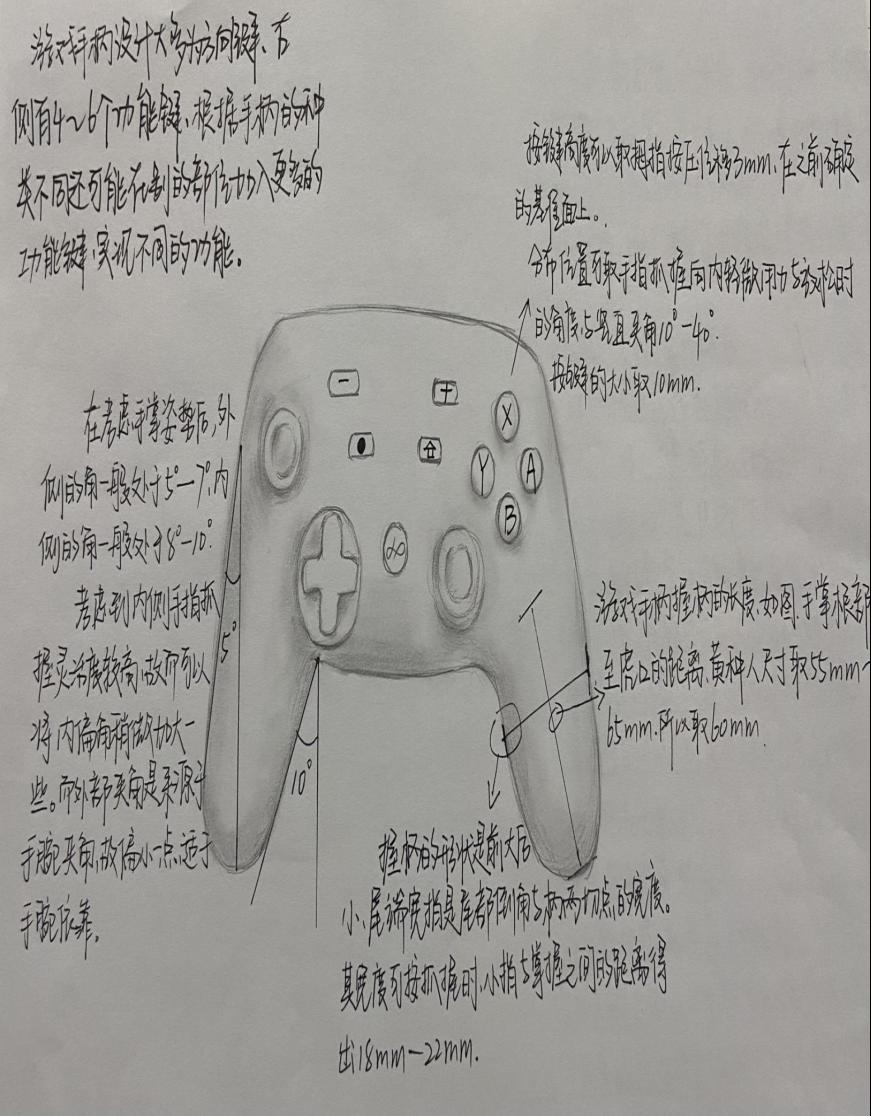 游戏手柄设计大多为方向键、右
侧有4~6个功能键、根据手柄的种
类不同还可能在别的部位加入更多的
功能键,实现不同的功能。
按键高度可以取拇指按压位移3mm,在之前确定
的基准面上。
分布位置可取手指抓握向内轻微用力与放松时
的角度,与竖直夹角10°-40°.
按键的大小取10mm.
在考虑手掌姿势后,外
侧的角一般处于5°-7°,内
侧的角一般处于8°-10°.
考虑到内侧手指抓
握灵活度较高,故而可以
将内偏角稍做加大一
些。而外部夹角是来源于
手腕夹角,故偏小一点,适于
手腕依靠。
-
+
X
Y
A
B
∞
5°
10°
游戏手柄握柄的长度,如图,手掌根部
至虎口的距离,黄种人尺寸取55mm-
65mm.所以取60mm.
握柄的形状是前大后
小、尾端宽指是尾部倒角与柄两切点的宽度。
其宽度可按抓握时,小指与掌握之间的距离得
出18mm-22mm.